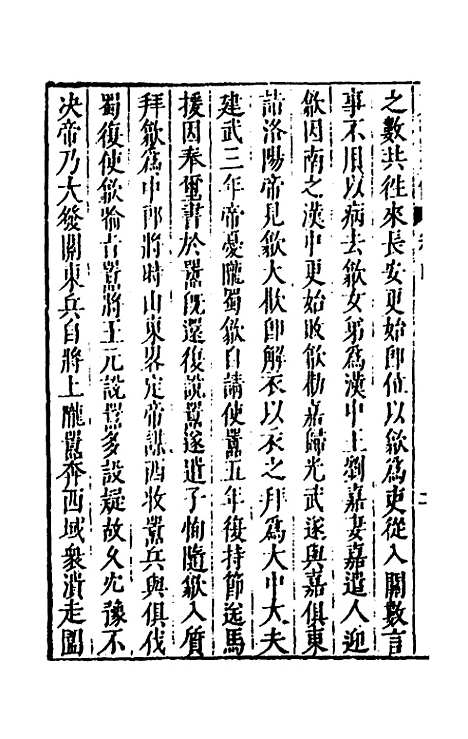 之數共徃來長安更始即位以歙爲吏從入關數言
事不用以病去歙女弟爲漢中王劉嘉妻嘉遣人迎
歙因南之漢中更始敗歙勸嘉歸光武遂與嘉俱東
詣洛陽帝見歙大歡即解衣以衣之拜爲大中大夫
建武三年帝憂隴蜀歙自請使囂五年復持節送馬
援因奉璽書於囂旣還復說囂遂遣子恂隨歙入質
拜歙爲中郎將時山東畧定帝謀西收囂兵與俱伐
蜀復使歙喻吉囂將王元說囂多設疑故久冘豫不
决帝乃大發關東兵自將上隴囂奔西域衆潰走圍